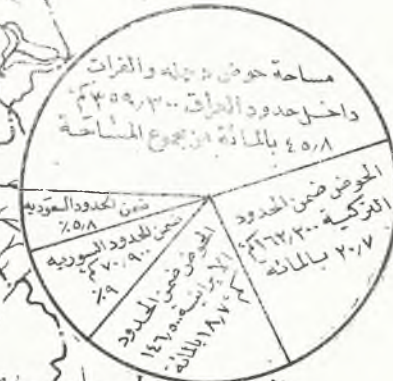 مساحة حوض دجله والفرات
داخل حدود العراق ٣٥٩,٣٠٠ كم٢
٤٥,٨ بالمائة من مجموع المساحة
الحوض ضمن الحدود
التركية ١٦٢,٣٠٠ كم٢
٢٠,٧ بالمائه
الحوض ضمن الحدود
الايرانية ١٤٦,٥٠٠
كم٢ ١٨,٧ بالمائة
ضمن الحدود السوريه
٧٠,٩٠٠ كم٢
٩٪
ضمن الحدود السعوديه
٥,٨٪